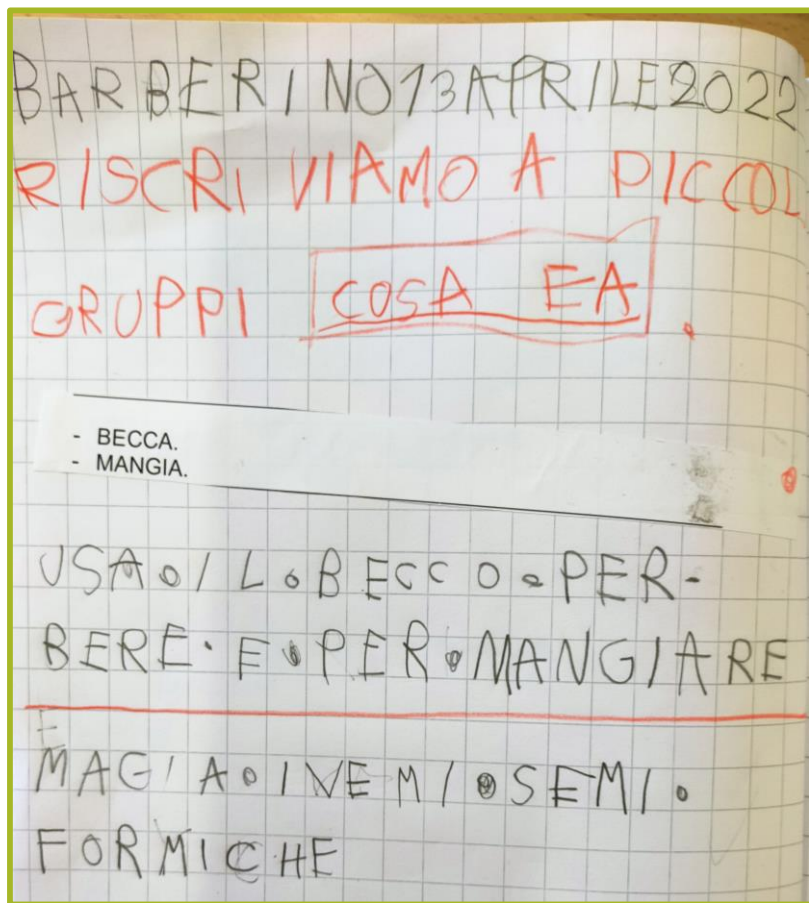 BARBERINO 13 APRILE 2022
RISCRIVIAMO A PICCOL
GRUPPI COSA FA.
- BECCA.
- MANGIA.
USA•IL•BECCO•PER-
BERE•E•PER•MANGIARE
MAGIA•IVEMI•SEMI•
FORMICHE